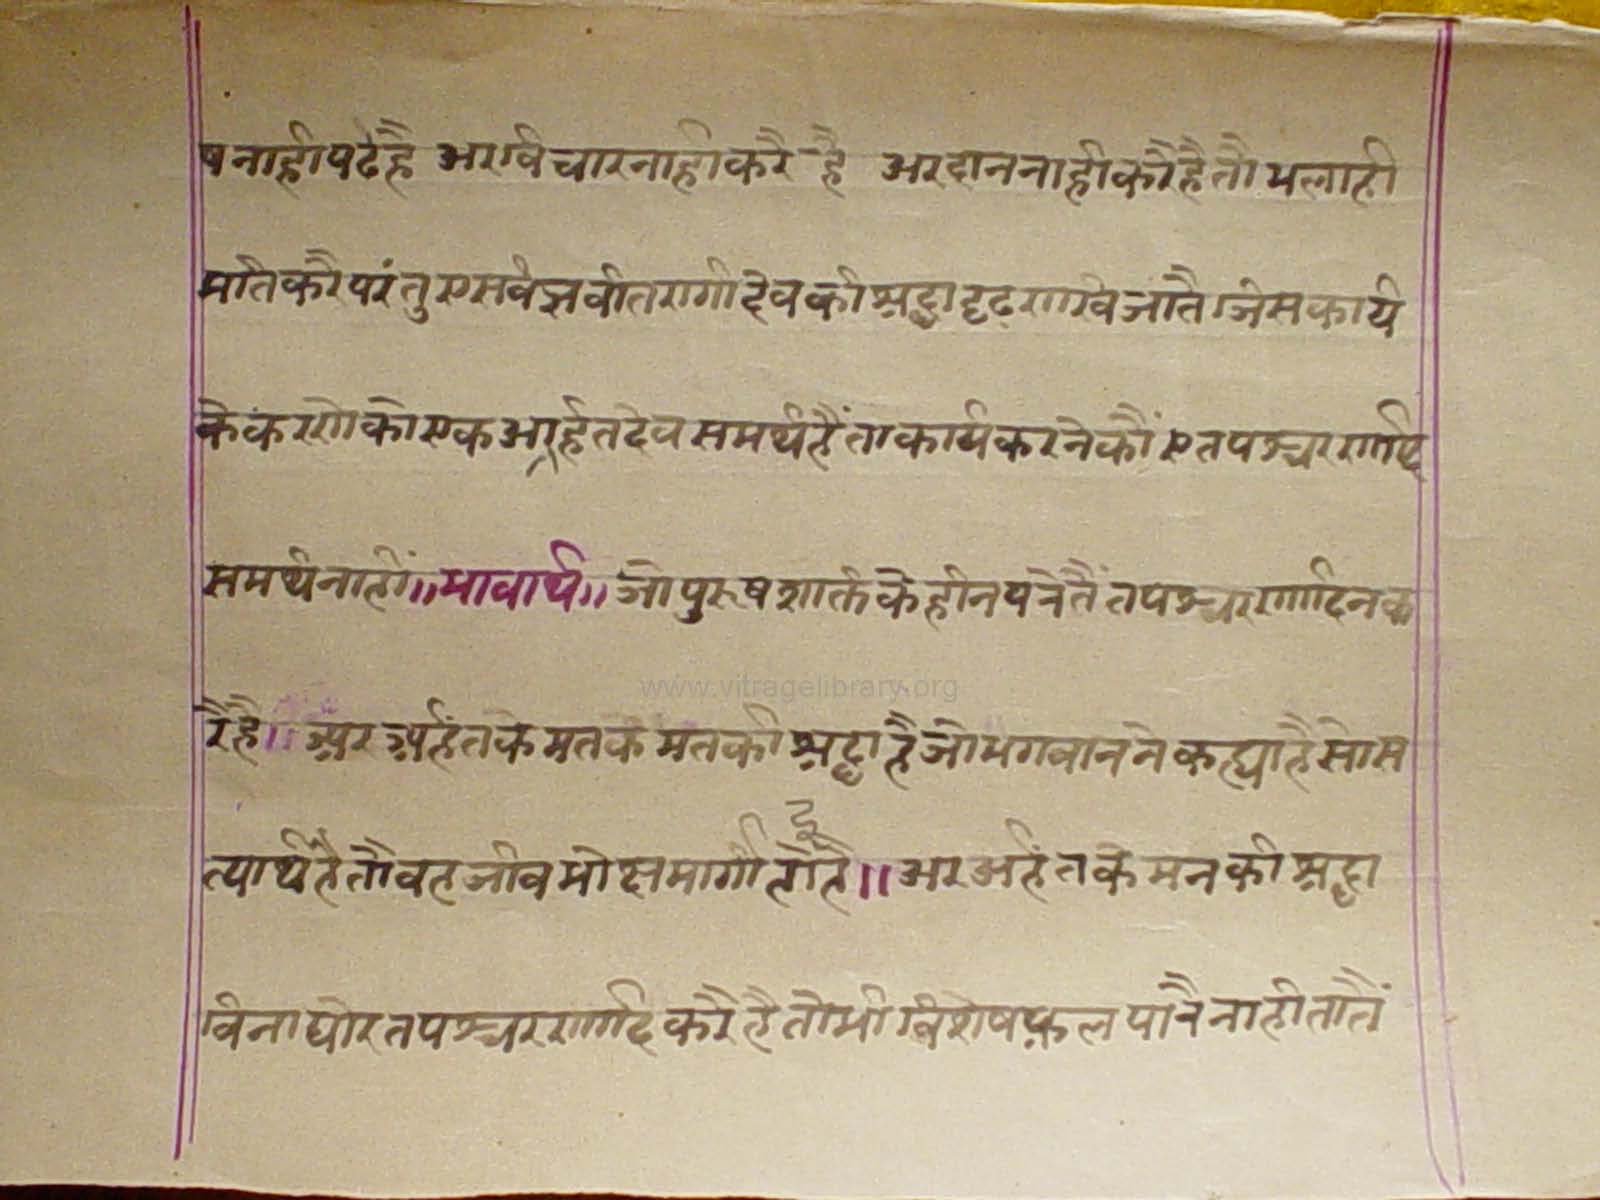 ष नाही पढै है अर विचार नाही करै है अर दान नाही करै है तौ भला ही
मति करै परंतु ए सर्वज्ञ वीतरागी देव की श्रद्धा दृढ राखि जातै जिस कार्य
के करणे को एक अरहंत देव समर्थ है ता कार्य करने कौं ए तपश्चरणादि
समर्थ नाहीं॥ भावार्थ॥ जो पुरूष शक्ति के हीनपने तैं तपश्चरणादि न क
रै है॥ अर अर्हंत के मत के मत की श्रद्धा है जो भगवान ने कह्या है सो स
त्यार्थ है तौ वह जीव मोक्षमार्गी हौ है॥ अर अर्हंत के मन की श्रद्धा
विना घोर तपश्चरणादि करै है तो भी विशेष फल पावै नाही तातैं
www.vitragelibrary.org